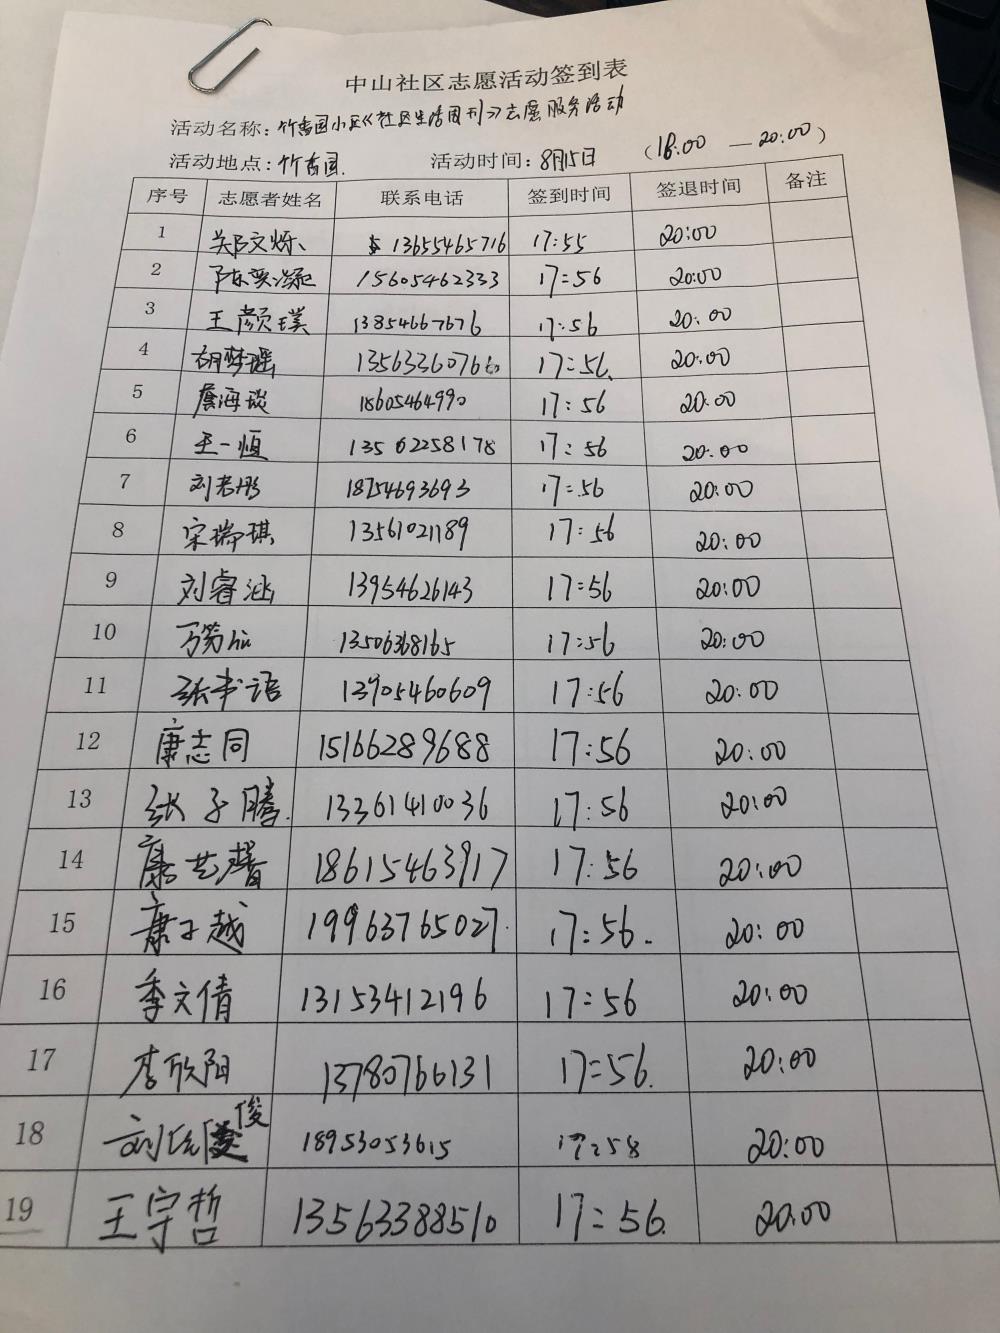 中山社区志愿活动签到表
活动名称：竹香园小区《社区生活周刊》志愿服务活动
活动地点：竹香园. 活动时间：8月15日 （18:00 — 20:00）
序号 志愿者姓名 联系电话 签到时间 签退时间 备注
1 郑文烁 13655465716 17:55 20:00
2 15605462333 17:56 20:00
3 王颜璞 13854667676 17:56 20:00
4 胡梦瑶 1356336076 17:56 20:00
5 詹海谈 18605464990 17:56 20:00
6 王一恒 13562258178 17:56 20:00
7 刘君彤 18754693693 17:56 20:00
8 宋瑞琪 13561021189 17:56 20:00
9 刘睿涵 13954626143 17:56 20:00
10 13506368165 17:56 20:00
11 张书语 13905460609 17:56 20:00
12 康志同 15166289688 17:56 20:00
13 张子腾. 13361410036 17:56 20:00
14 康艺馨 18615463917 17:56 20:00
15 康子越 19963765027 17:56. 20:00
16 季文倩 13153412196 17:56 20:00
17 李欣阳 13780766131 17:56. 20:00
18 刘 俊 18953053615 17:58 20:00
19 王守哲 13563388510 17:56. 20:00